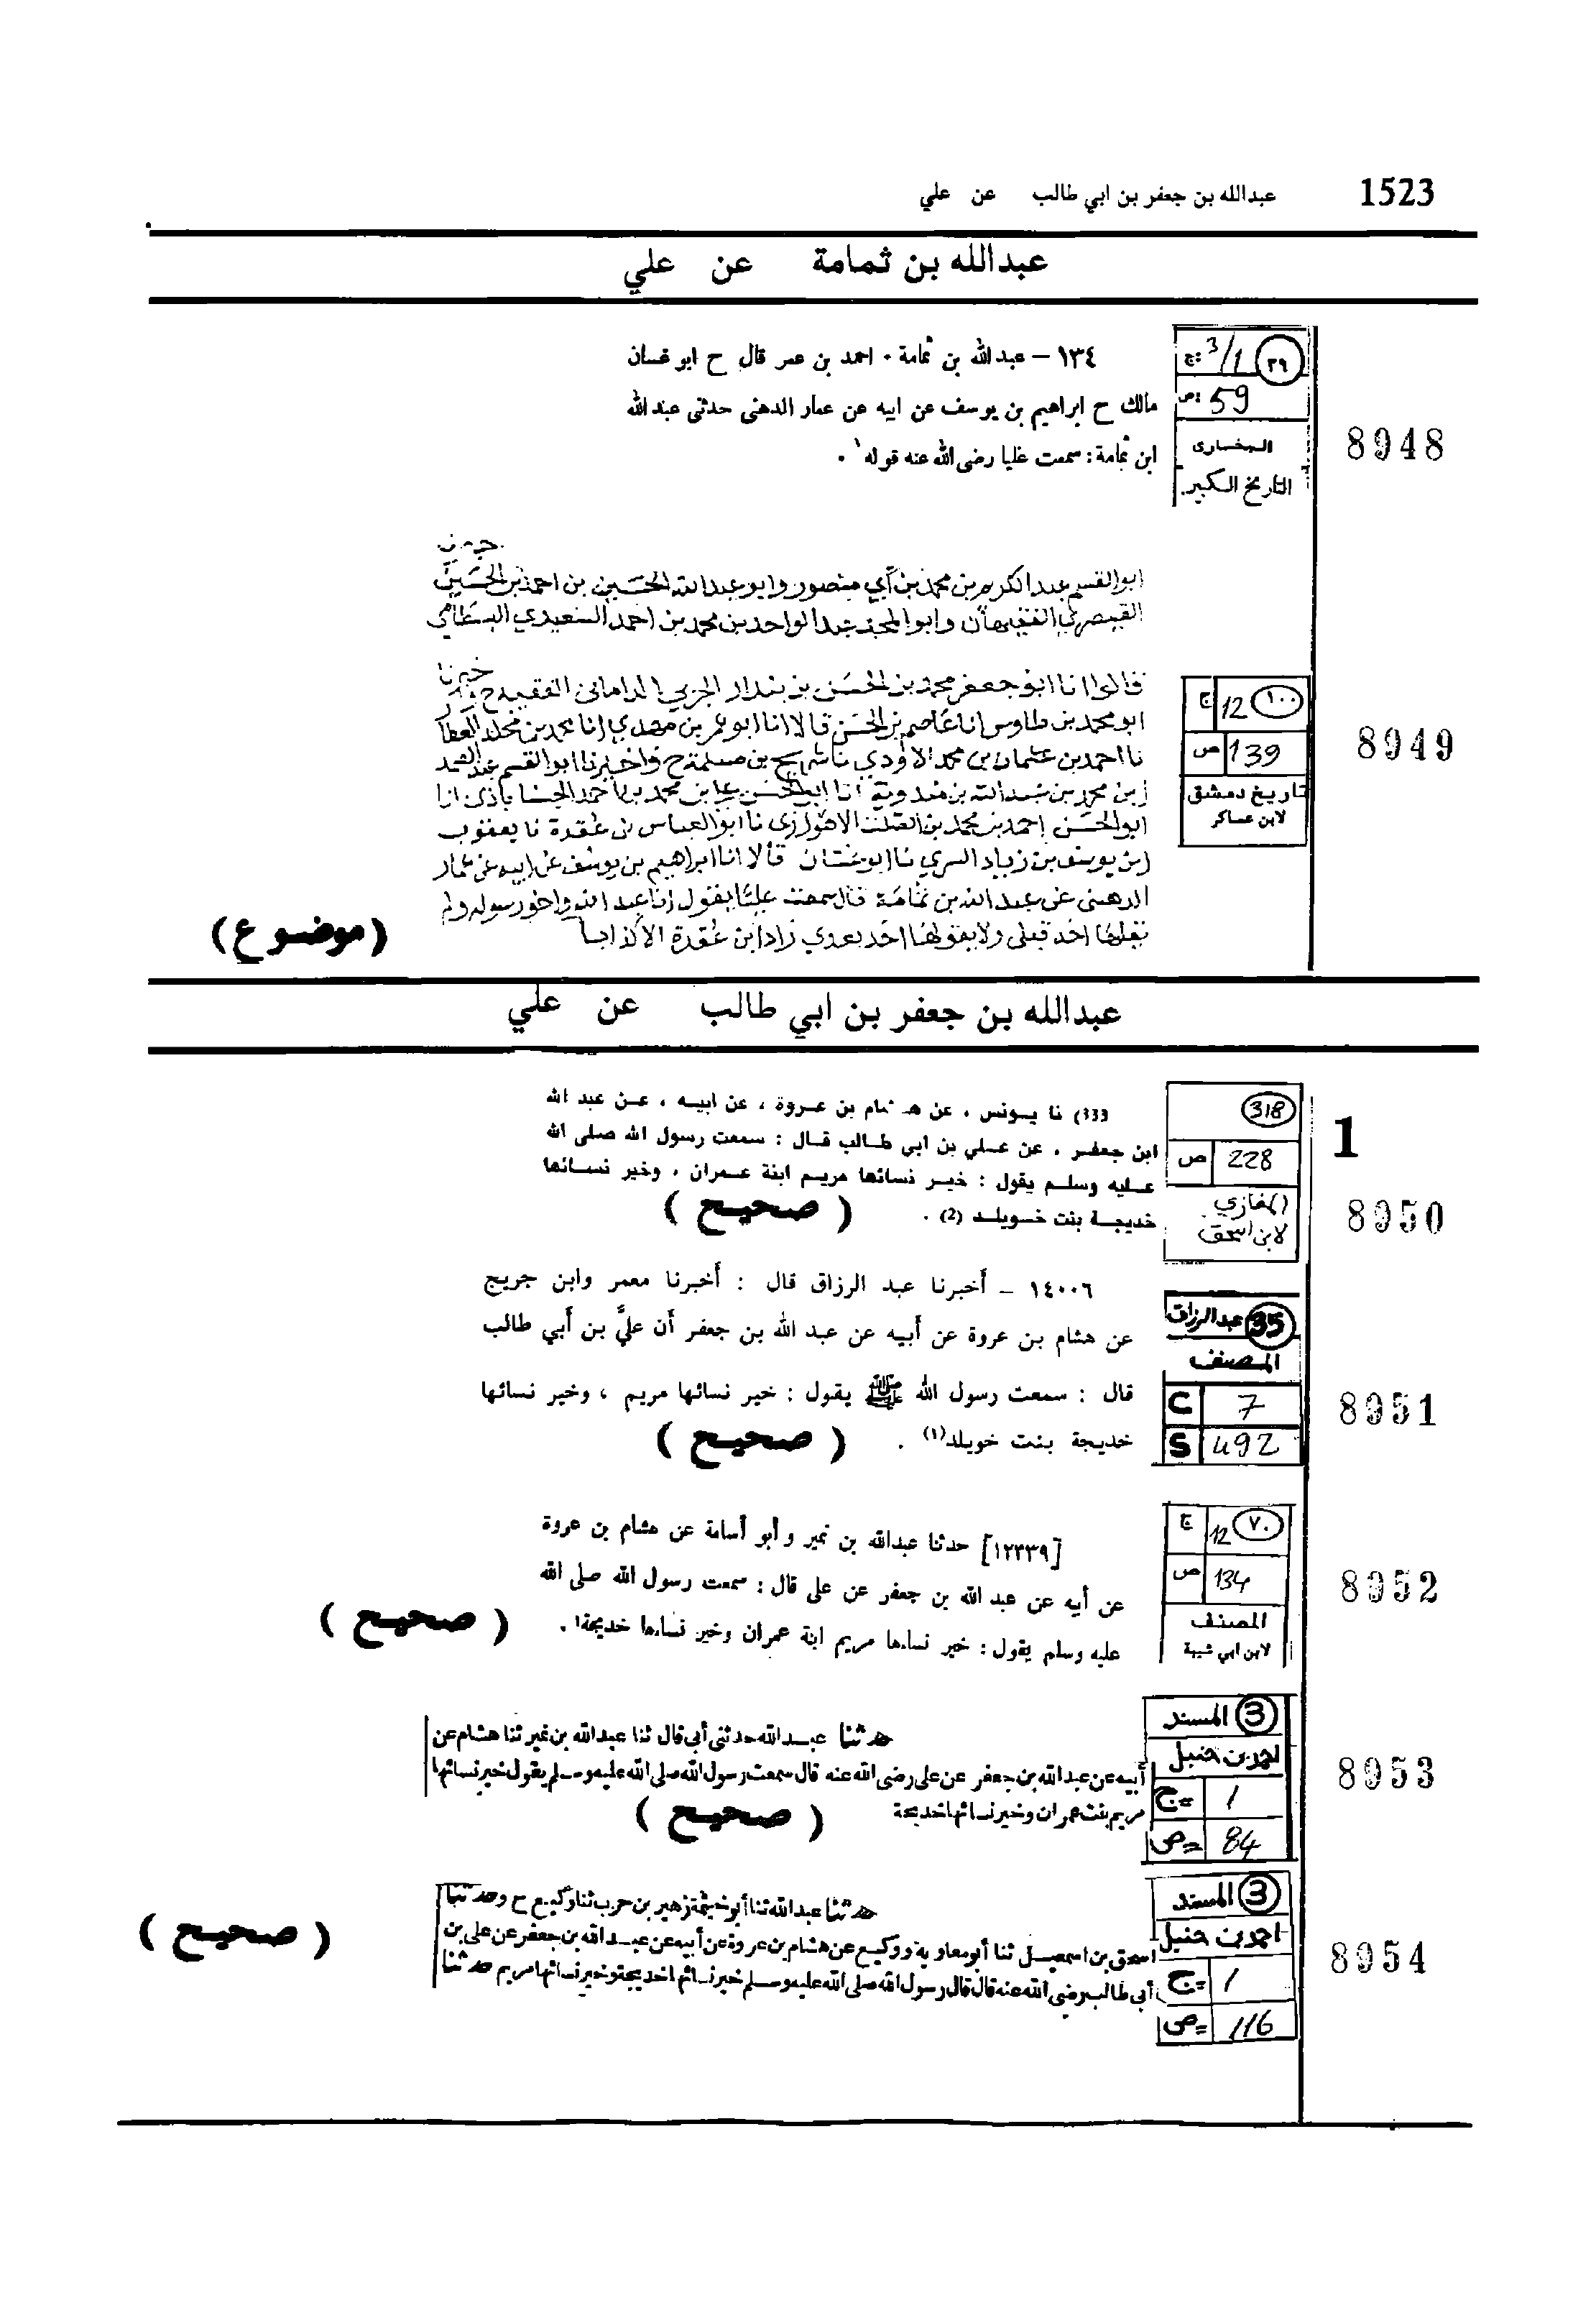 1523 عبدالله بن جعفر بن ابي طالب عن علي
عبدالله بن ثمامة عن علي
8948
٣٩ 3/1 ج:
59 ص:
البخارى
التاريخ الكبير
١٣٤ – عبدالله بن ثمامة . احمد بن عمر قال ح ابو غسان
مالك ح ابراهيم بن يوسف عن ابيه عن عمار الدهنى حدثنى عبدالله
ابن ثمامة : سمعت عليا رضى الله عنه قوله ١ .
8949
١٠٠ 12 ج
139 ص
تاريخ دمشق
لابن عساكر
ابو القسم عبد الكريم بن محمد بن أبي منصور وابو عبد الله الحسين بن احمد بن الحسين
الفقيهان وابو المجد عبد الواحد بن محمد بن احمد البسطامي
قالوا انا ابو جعفر محمد بن الحسن بن بندار الدامغاني الفقيه ح
ابو محمد بن طاوس انا عاصم بن الحسن قالا انا ابو عمر بن مهدي انا محمد بن مخلد العطار
نا احمد بن عثمان بن محمد الاودي نا شريح بن مسلمة ح واخبرنا ابو القسم عبد الصمد
ابن محمد بن عبد الله بن مندويه انا ابو الحسن علي بن محمد بن احمد انا
ابو الحسن احمد بن محمد بن الصلت الاهوازي نا ابو العباس بن عقدة نا يعقوب
ابن يوسف بن زياد نا ابو غسان قالا انا ابراهيم بن يوسف عن ابيه عن عمار
الدهني عن عبد الله بن ثمامة قال سمعت عليا يقول انا عبد الله واخو رسوله ولم
يقلها احد قبلي ولا يقولها احد بعدي زاد ابن عقدة الا كذابا
(موضوع)
عبدالله بن جعفر بن ابي طالب عن علي
1
8950
318
228 ص
المغازي
لابن اسحق
333) نا يونس ، عن هشام بن عروة ، عن ابيه ، عن عبد الله
ابن جعفر ، عن علي بن ابي طالب قال : سمعت رسول الله صلى الله
عليه وسلم يقول : خير نسائها مريم ابنة عمران ، وخير نسائها
خديجة بنت خويلد (2) . ( صحيح )
8951
35 عبدالرزاق
المصنف
C 7
S 492
١٤٠٠٦ – أخبرنا عبد الرزاق قال : أخبرنا معمر وابن جريج
عن هشام بن عروة عن أبيه عن عبد الله بن جعفر أن عليَّ بن أبي طالب
قال : سمعت رسول الله ﷺ يقول : خير نسائها مريم ، وخير نسائها
خديجة بنت خويلد(١) . ( صحيح )
8952
٧٠ 12 ج
134 ص
المصنف
لابن ابي شيبة
[١٢٣٣٩] حدثنا عبدالله بن نمير وأبو أسامة عن هشام بن عروة
عن أبيه عن عبد الله بن جعفر عن على قال : سمعت رسول الله صلى الله
عليه وسلم يقول : خير نساءها مريم ابنة عمران وخير نساءها خديجة١ .
( صحيح )
8953
3 المسند
احمد بن حنبل
ج= 1
ص= 84
حدثنا عبد الله حدثنى أبى قال ثنا عبدالله بن نمير ثنا هشام عن
أبيه عن عبدالله بن جعفر عن على رضى الله عنه قال سمعت رسول الله صلى الله عليه وسلم يقول خير نسائها
مريم بنت عمران وخير نسائها خديجة
( صحيح )
8954
3 المسند
احمد بن حنبل
ج= 1
ص= 116
حدثنا عبدالله ثنا أبو خيثمة زهير بن حرب ثنا وكيع ح وحدثنا
اسحق بن اسمعيل ثنا أبو معاوية ووكيع عن هشام بن عروة عن أبيه عن عبد الله بن جعفر عن على بن
أبى طالب رضى الله عنه قال قال رسول الله صلى الله عليه وسلم خير نسائها خديجة وخير نسائها مريم حدثنا
( صحيح )